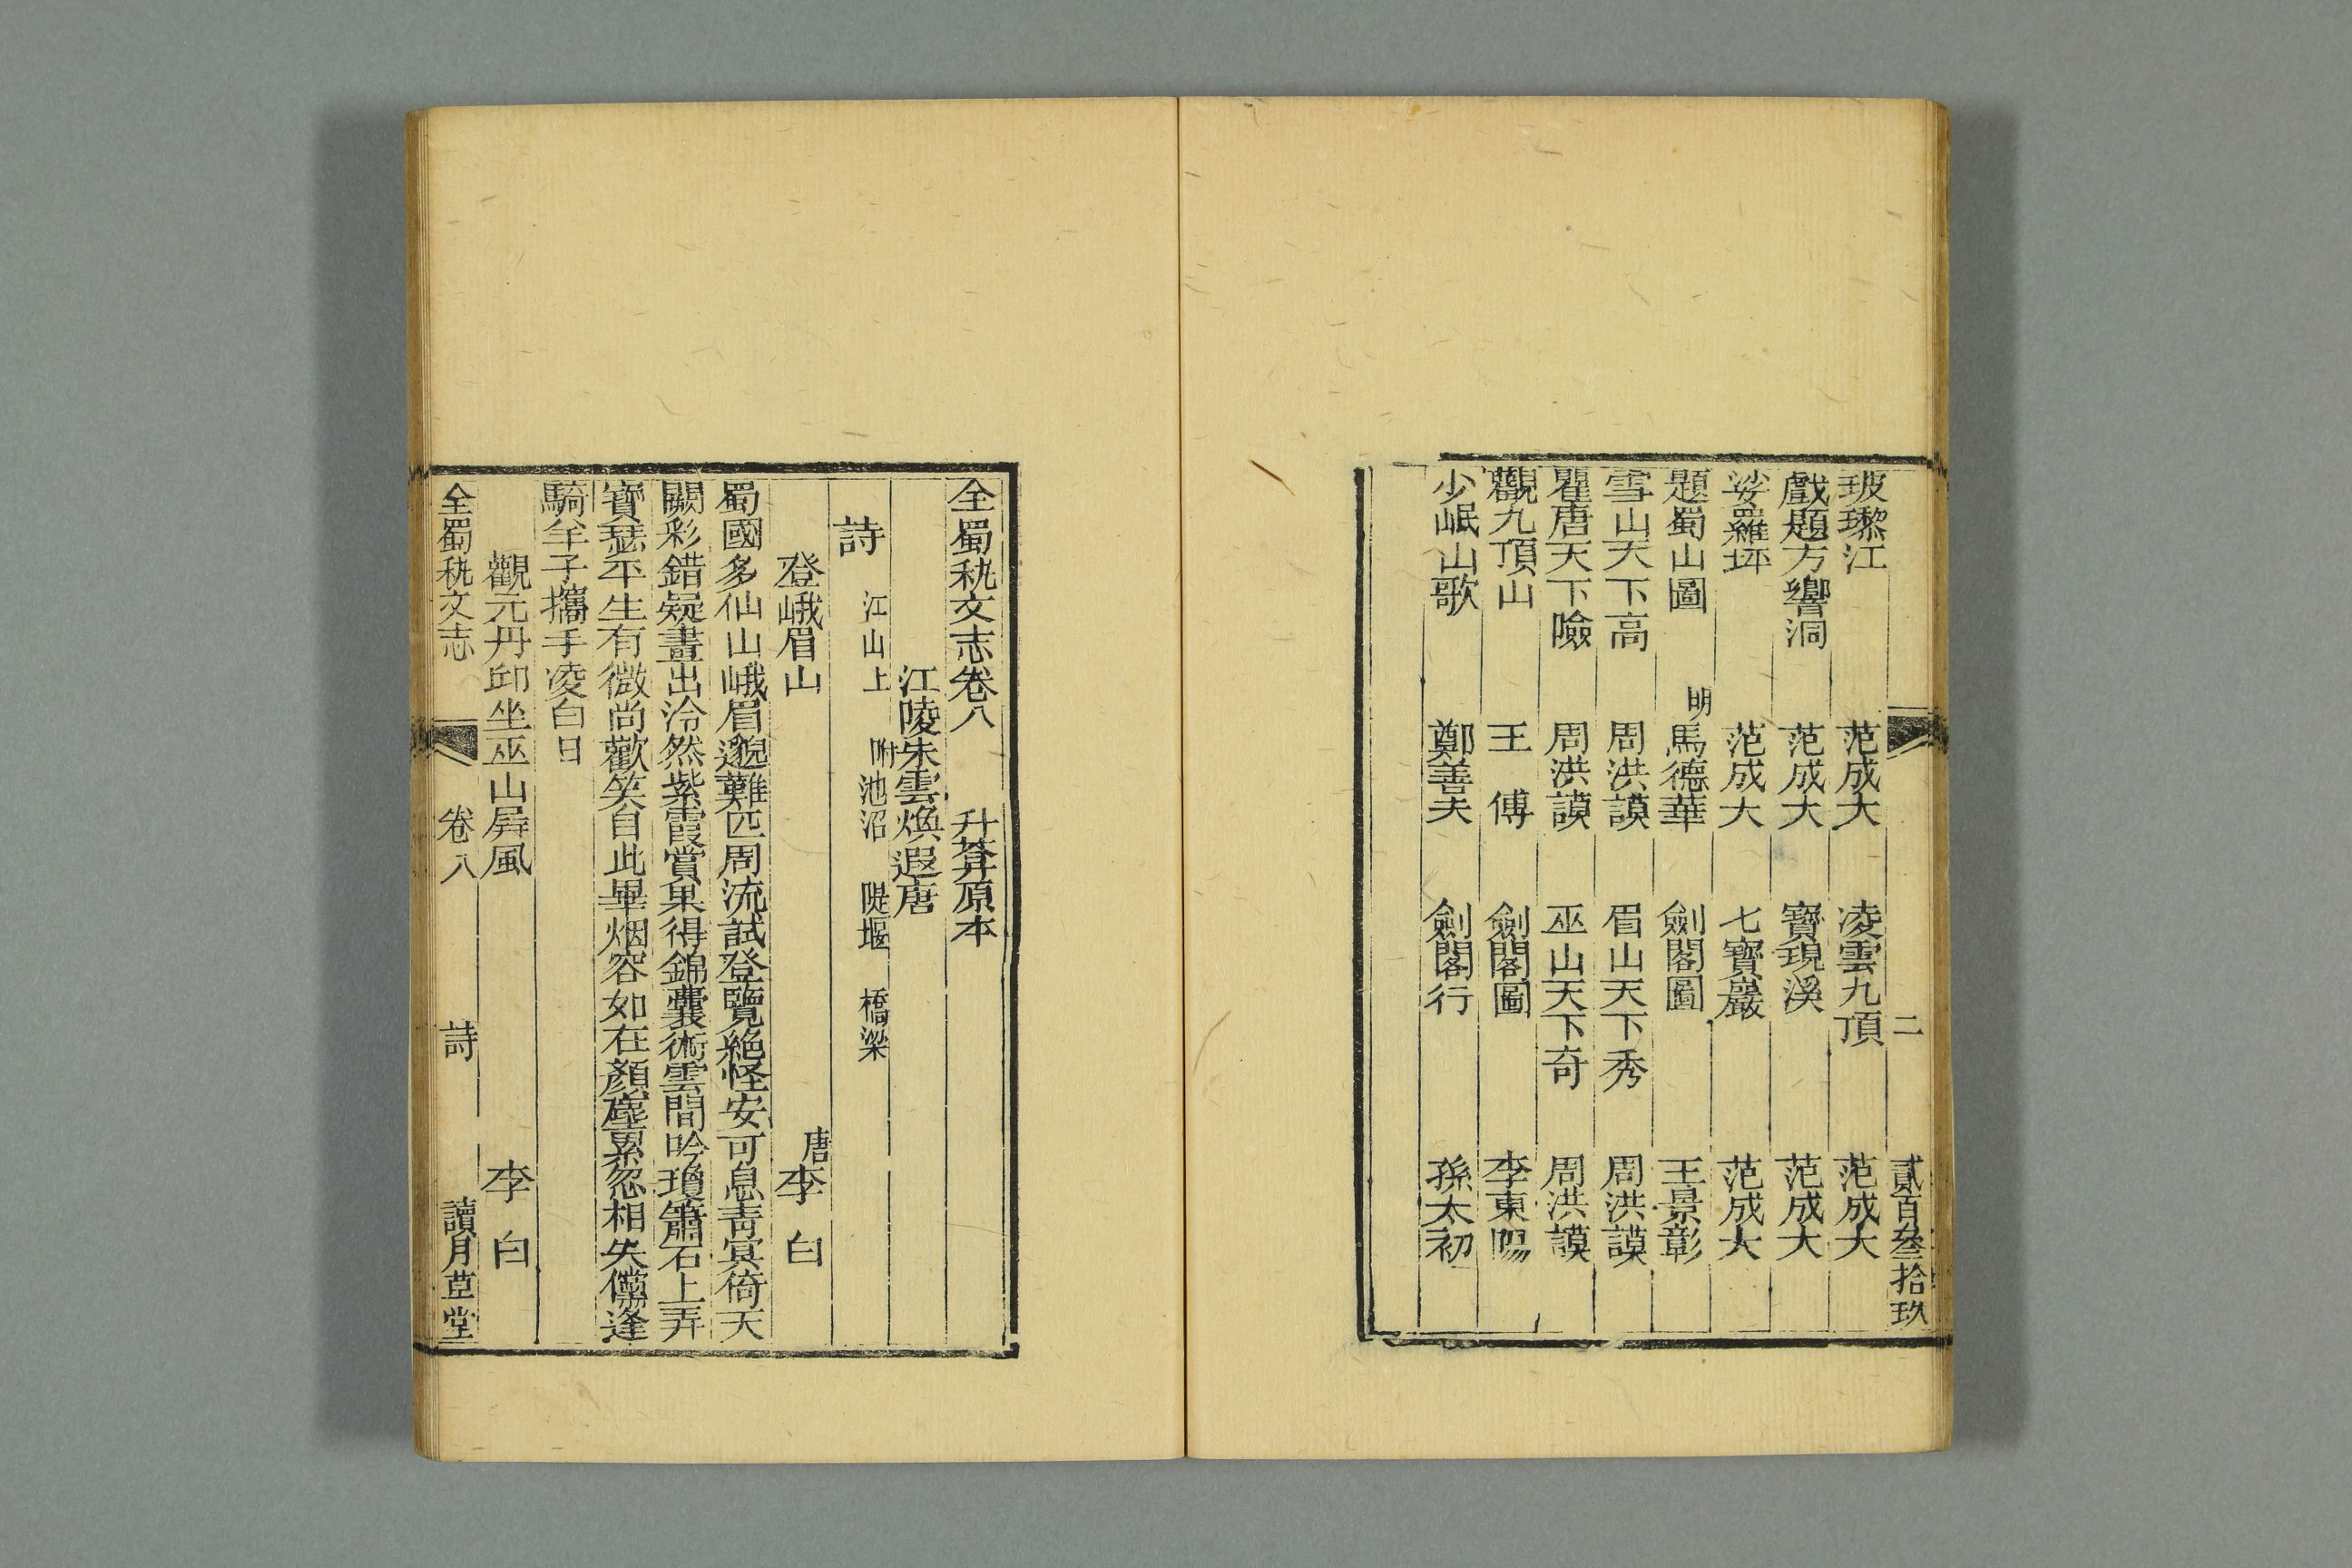 二 貳百叁拾玖
玻瓈江 范成大 凌雲九頂 范成大
戲題方響洞 范成大 寶現溪 范成大
娑羅坪 范成大 七寶巖 范成大
題蜀山圖 明 馬德華 劍閣圖 王景彰
雪山天下高 周洪謨 眉山天下秀 周洪謨
瞿唐天下險 周洪謨 巫山天下奇 周洪謨
觀九頂山 王 傅 劍閣圖 李東陽
少岷山歌 鄭善夫 劍閣行 孫太初
全蜀秇文志卷八 升菴原本
江陵朱雲煥遐唐
詩 江山上 附池沼 隄堰 橋梁
登峨眉山 唐李 白
蜀國多仙山峨眉邈難匹周流試登覽絶怪安可息靑冥倚天
闕彩錯疑畫出泠然紫霞賞果得錦囊術雲間吟瓊簫石上弄
寶瑟平生有微尚歡笑自此畢烟容如在顏塵累忽相失儻逢
騎羊子攜手凌白日
觀元丹邱坐巫山屏風 李 白
全蜀秇文志 卷八 詩 讀月草堂